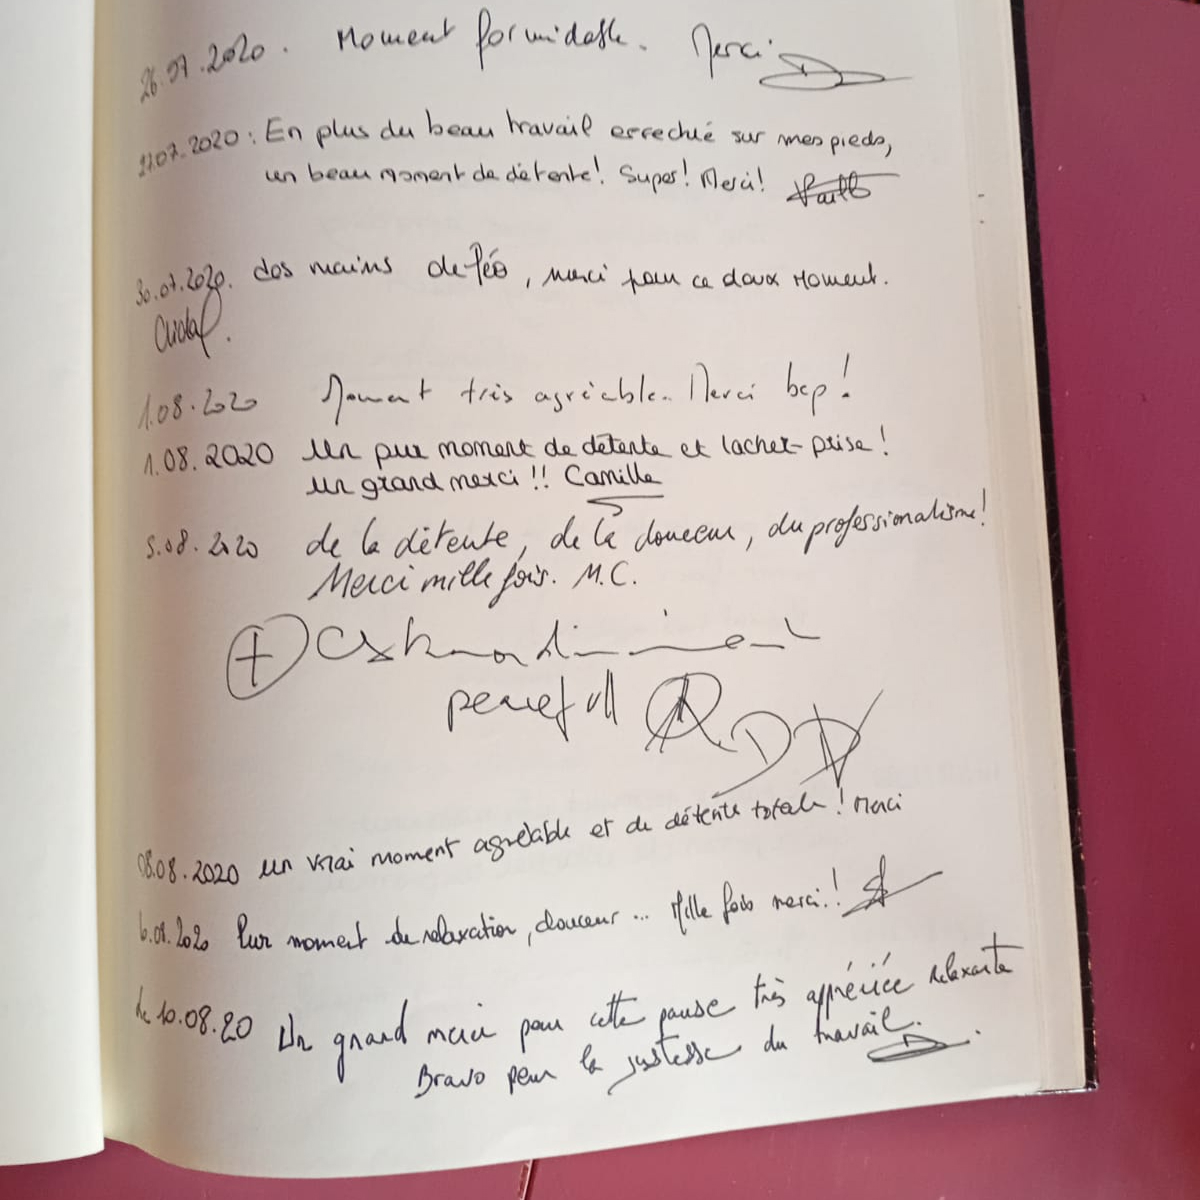 26.07.2020. Moment formidable. Merci
27.07.2020: En plus du beau travail effectué sur mes pieds,
un beau moment de détente! Super! Merci!
30.07.2020. des mains de fée, merci pour ce doux moment.
1.08.2020 Moment très agréable. Merci bcp!
1.08.2020 Un pur moment de détente et lacher-prise!
un grand merci!! Camille
5.08.2020 de la détente, de la douceur, du professionalisme!
Merci mille fois. M.C.
peacefull
08.08.2020 un vrai moment agréable et de détente totale! Merci
Pur moment de relaxation, douceur... Mille fois merci!!
Le 10.08.20 Un grand merci pour cette pause très appréciée relaxante
Bravo pour la justesse du travail.